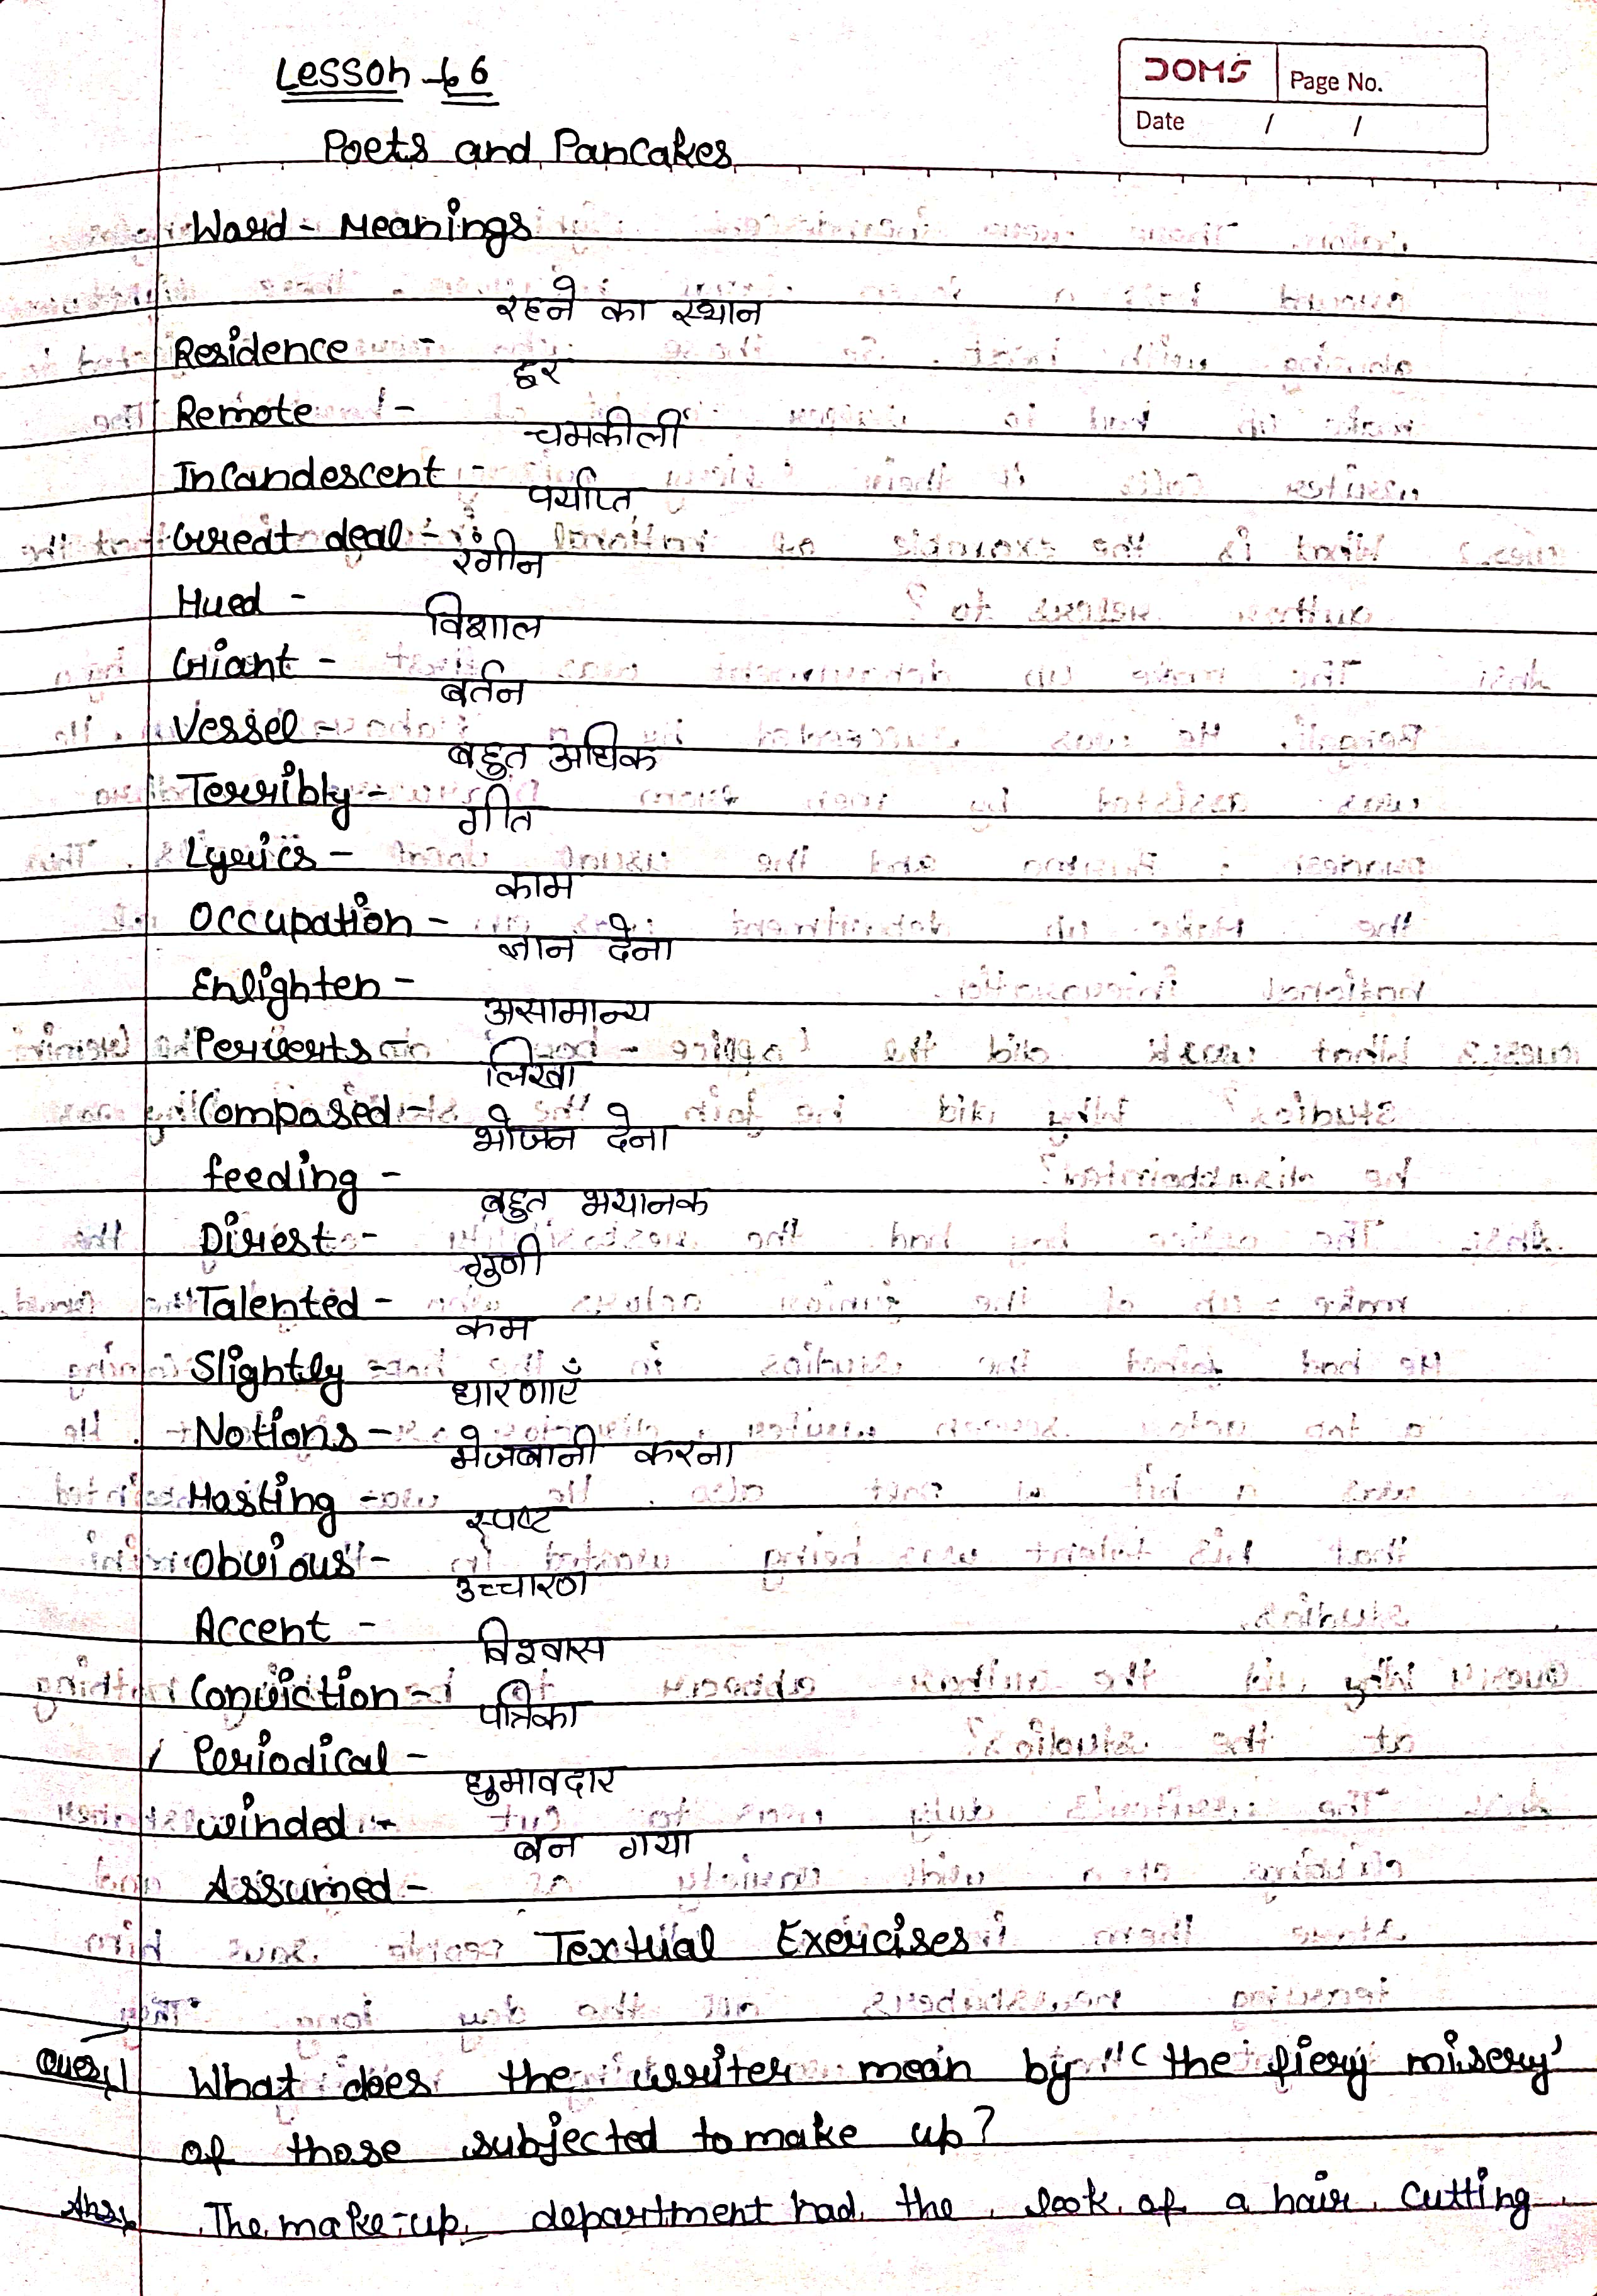 Lesson - 6
DOMS Page No.
Date / /
Poets and Pancakes
Word - Meanings
Residence - रहने का स्थान
Remote - दूर
Incandescent - चमकीली
Great deal - पर्याप्त
Hued - रंगीन
Giant - विशाल
Vessel - बर्तन
Terribly - बहुत अधिक
Lyrics - गीत
Occupation - काम
Enlighten - ज्ञान देना
Perverts - असामान्य
Composed - लिखा
feeding - भोजन देना
Direst - बहुत भयानक
Talented - गुणी
Slightly - कम
Notions - धारणाएँ
Hosting - मेजबानी करना
Obvious - स्पष्ट
Accent - उच्चारण
Conviction - विश्वास
Periodical - पत्रिका
winded - घुमावदार
Assumed - बन गया
Textual Exercises
Ques1 What does the writer mean by "‘the fiery misery’
of those subjected to make up?
Ans: The make-up department had the look of a hair cutting